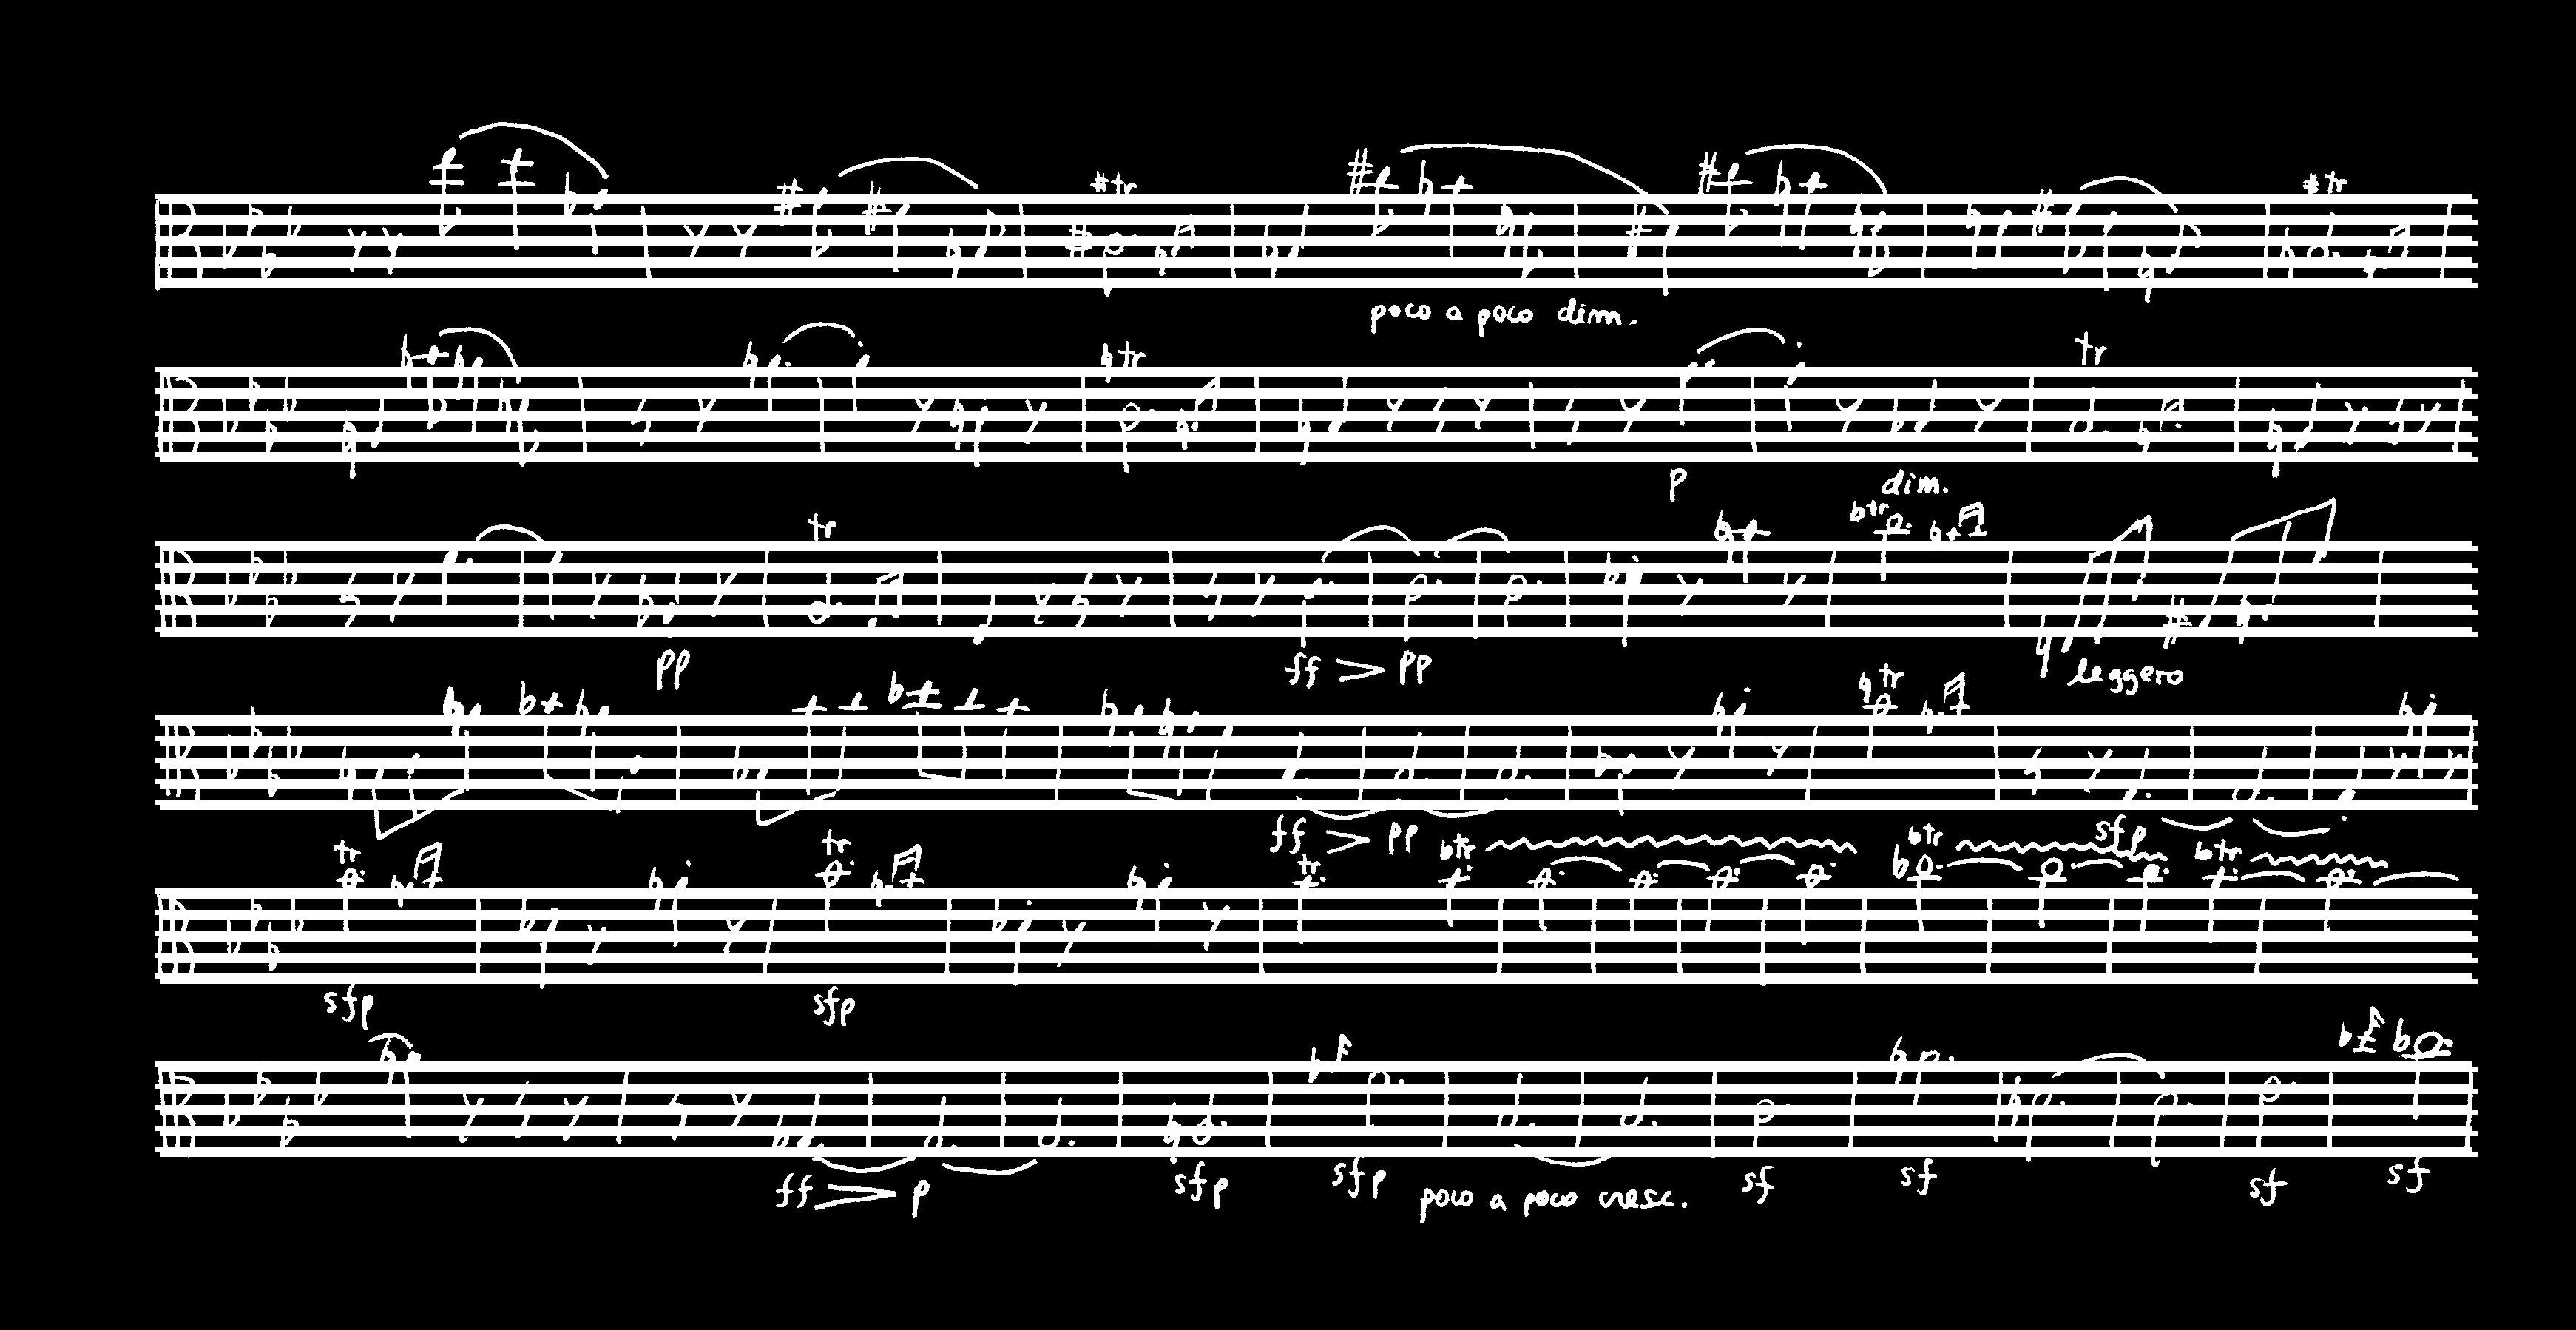 tr tr
poco a poco dim.
tr tr
p dim.
tr tr
pp ff pp leggero
tr
ff pp sfp
tr tr tr tr tr tr
sfp sfp
ff p sfp sfp poco a poco cresc. sf sf sf sf